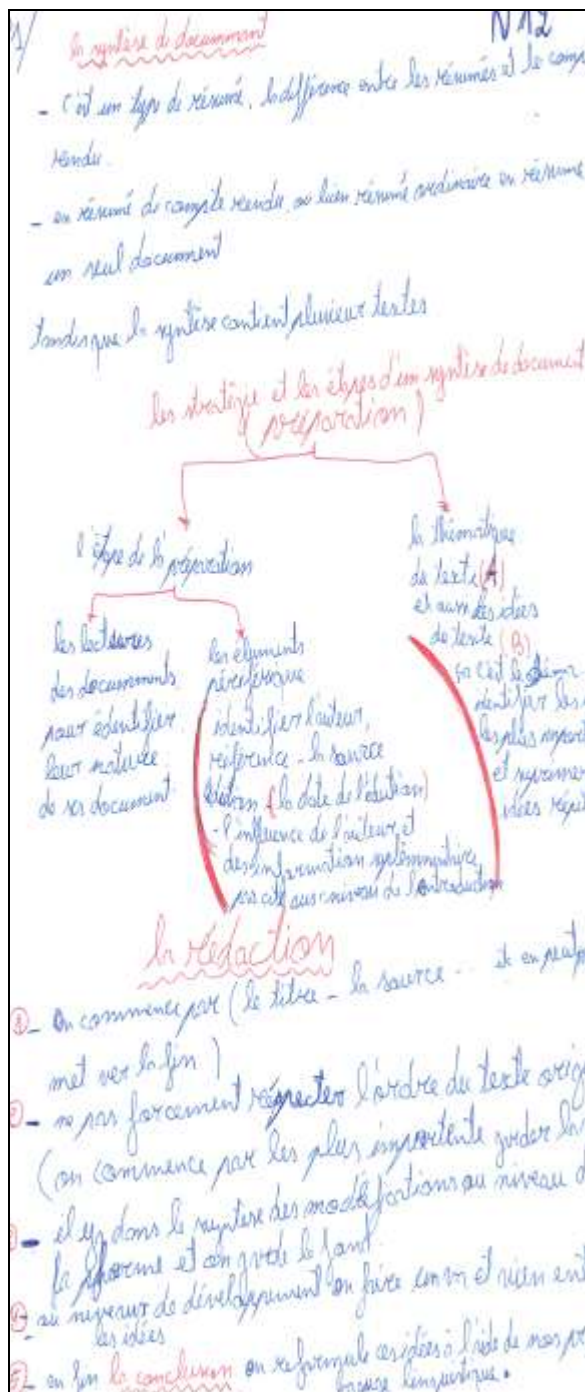 1/ la syntèse de documment N12
- C'est un type de résumé, la différence entre les résumés et le comp
rendu.
- en résumé de compte rendu, ou bien résumé ordinaire en résume
un seul document
tandis que la syntèse contient plusieur textes
les stratégie et les étapes d'un syntèse de document
(préparation)
l'étape de la préparation
les lectures
des documments
pour édentifier
leur nature
de ses document
les éluments
périférique
identifier l'auteur,
réference - la source
édition (la date de l'édution)
- l'influence de l'auteur et
des information
pas cité aux niveau de l'introduction
la thématique
de texte (A)
et aux les idées
de texte (B)
identifier les
les plus import
et suprimer
idées répé
la rédaction
1 - On commence par (le titre - la source ... et en peut p
met ver la fin)
2 - ne pas forcement réspecter l'ordre du texte orig
(on commence par les plus importente garder la
3 - il y a dans le syntèse des modéfications au niveau d
la forme et on garde le font.
4 - au niveaux de dévelappement on faire un va et vien ent
les idées
5 - en fin la conclusion on reformule ces idées à l'aide de nos pr
linguistique.